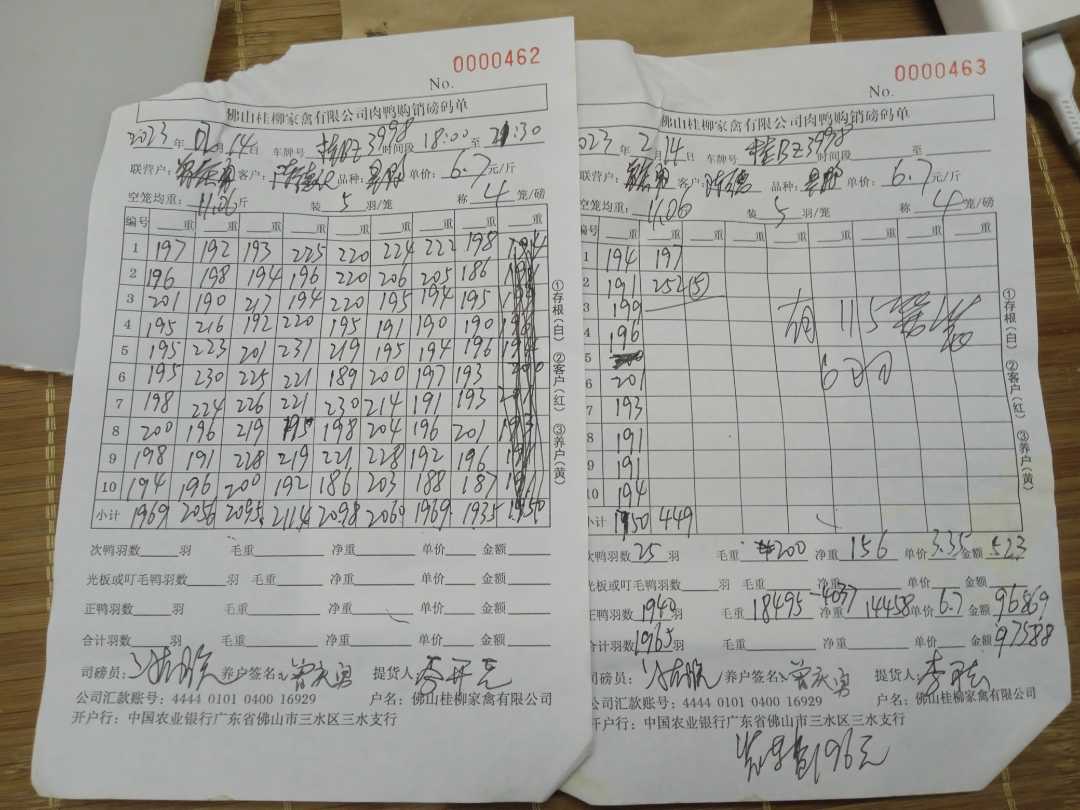 0000462
No.
佛山桂柳家禽有限公司肉鸭购销磅码单
2023年02月14日 车牌号 桂BZ3998 时间段 18:00至21:30
联营户: 客户: 品种: 单价: 6.7元/斤
空笼均重: 11.06斤 装5羽/笼 称4笼/磅
编号 重 重 重 重 重 重 重 重 重
1 197 192 193 225 220 224 222 198
2 196 198 194 196 220 206 205 186
3 201 190 217 194 220 195 194 195
4 195 216 192 220 195 191 190 190
5 195 223 201 231 219 195 194 196
6 195 230 225 221 189 200 197 193
7 198 224 226 221 230 214 191 193
8 200 196 219 195 198 204 196 201
9 198 191 228 219 221 228 192 196
10 194 196 200 192 186 203 188 187
小计 1969 2056 2095 2114 2098 2060 1969 1935
次鸭羽数 羽 毛重 净重 单价 金额
光板或叮毛鸭羽数 羽 毛重 净重 单价 金额
正鸭羽数 羽 毛重 净重 单价 金额
合计羽数 羽 毛重 净重 单价 金额
司磅员: 养户签名: 曾庆勇 提货人:
公司汇款账号: 4444 0101 0400 16929 户名: 佛山桂柳家禽有限公司
开户行: 中国农业银行广东省佛山市三水区三水支行
①存根(白) ②客户(红) ③养户(黄)
0000463
No.
佛山桂柳家禽有限公司肉鸭购销磅码单
2023年2月14日 车牌号 桂BZ3998 时间段 至
联营户: 客户: 品种: 单价: 6.7元/斤
空笼均重: 11.06 装5羽/笼 称4笼/磅
编号 重 重 重 重 重 重 重 重 重
1 194 197
2 191 252(5)
3 199
4 196
5
6 201
7 193
8 191
9 191
10 194
小计 1950 449
次鸭羽数25羽 毛重 200 净重 156 单价 3.35 金额 523
光板或叮毛鸭羽数 羽 毛重 净重 单价 金额
正鸭羽数1940羽 毛重 18495-4037 净重 14458 单价 6.7 金额 96869
合计羽数1965羽 毛重 净重 单价 金额 97588
司磅员: 养户签名: 曾庆勇 提货人:
公司汇款账号: 4444 0101 0400 16929 户名: 佛山桂柳家禽有限公司
开户行: 中国农业银行广东省佛山市三水区三水支行
196元
①存根(白) ②客户(红) ③养户(黄)